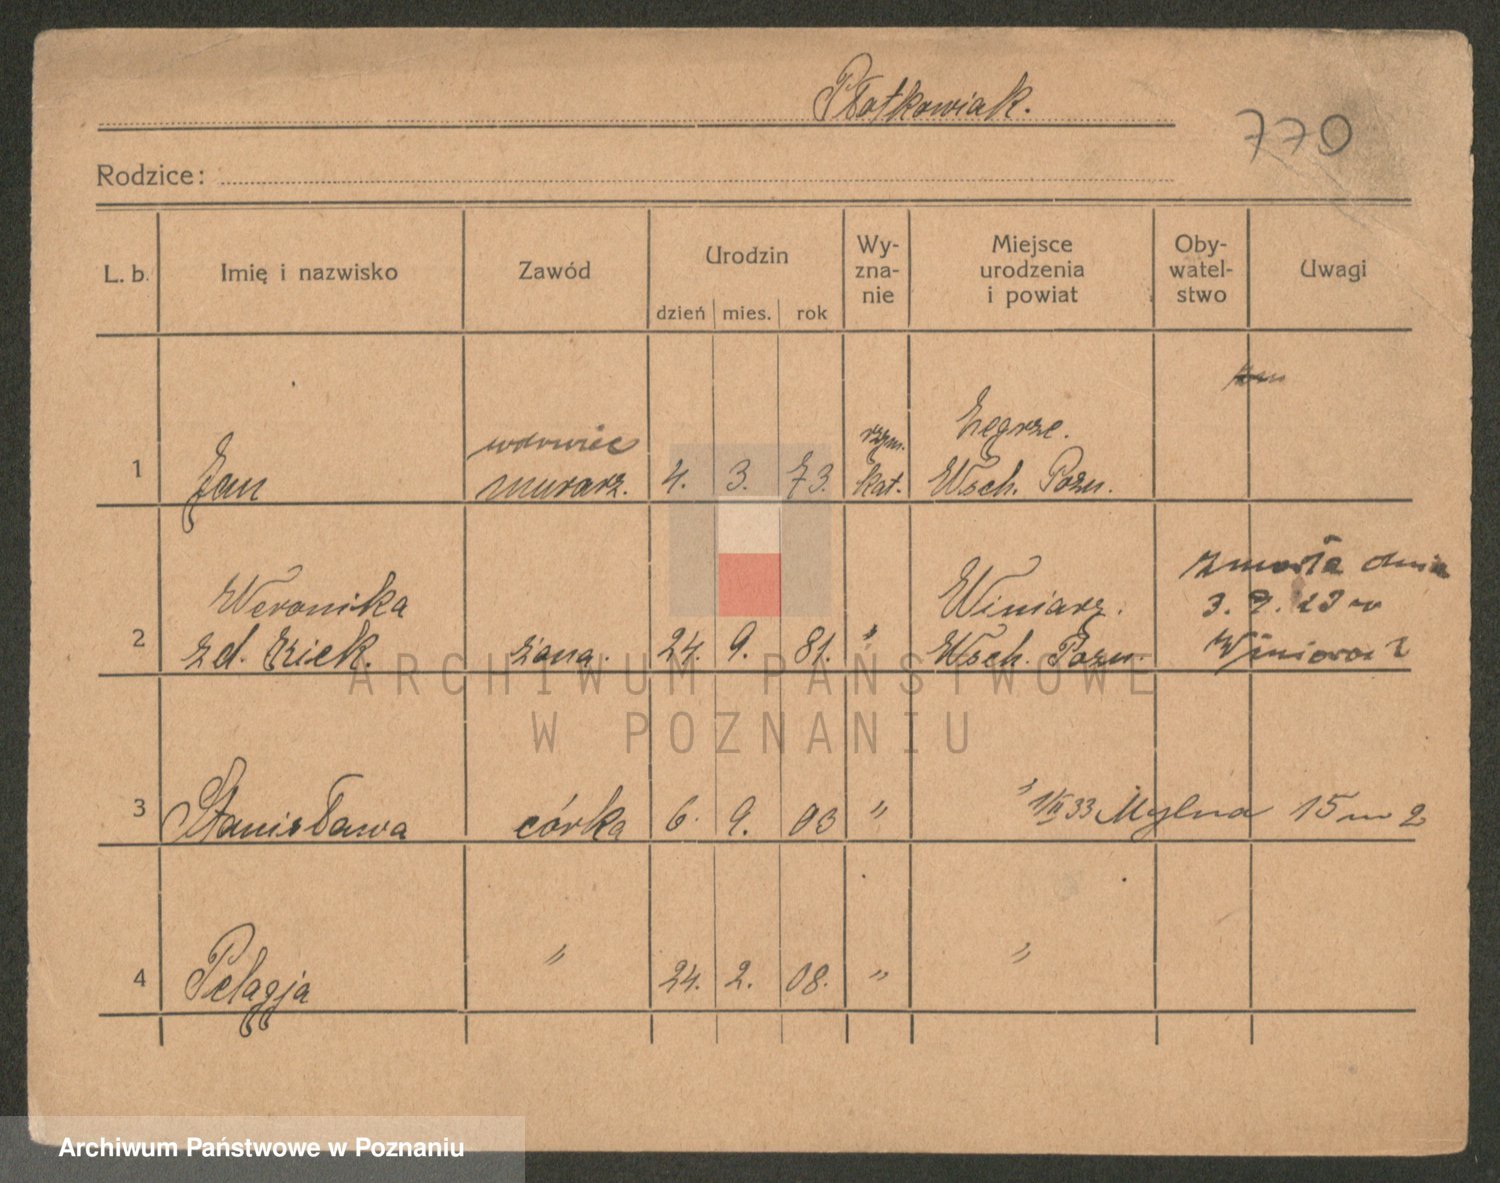 Płotkowiak.
770
Rodzice:
L. b. Imię i nazwisko Zawód Urodzin Wy- Miejsce Oby- Uwagi
zna- urodzenia watel-
nie i powiat stwo
dzień mies. rok
wdowiec rzym. Zegrze.
1 Jan murarz. 4. 3. 73. kat. Wsch. Pozn.
Weronika Winiarz. zmarła dnia
3. 9. 23 w
2 zd. żona. 24. 9. 81. " Wsch. Pozn. Winiarach
3 Stanisława córka 6. 9. 03 " " 1/II 33 Mylna 15 m 2
4 Pelagja " 24. 2. 08. " "
ARCHIWUM PAŃSTWOWE
W POZNANIU
Archiwum Państwowe w Poznaniu